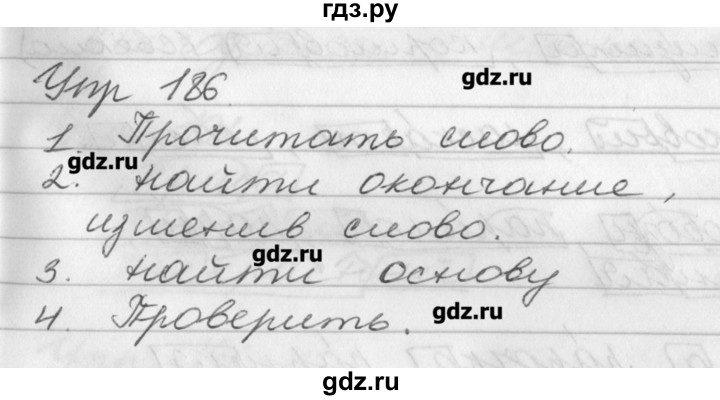 гдз.ру
Упр 186.
gdz.ru
1. Прочитать слово.
gdz.ru
2. найти окончание,
изменив слово.
gdz.ru
3. найти основу
gdz.ru
4. Проверить.
gdz.ru